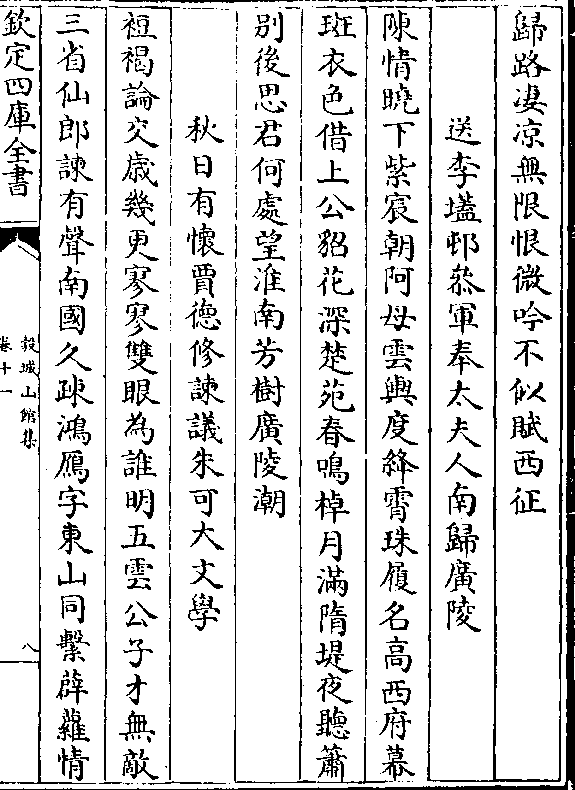 歸路凄凉無限恨微吟不似賦西征
送李𡑞邨叅軍奉太夫人南歸廣陵
陳情曉下紫宸朝阿母雲輿度絳霄珠履名高西府幕
斑衣色借上公貂花深楚苑春鳴棹月滿隋堤夜聽簫
别後思君何處望淮南芳樹廣陵潮
秋日有懷賈德修諫議朱可大文學
裋褐論交歳幾更寥寥雙眼為誰明五雲公子才無敵
三省仙郎諫有聲南國久疎鴻鴈字東山同繫薜蘿情
欽定四庫全書
榖城山館集
卷十一
八